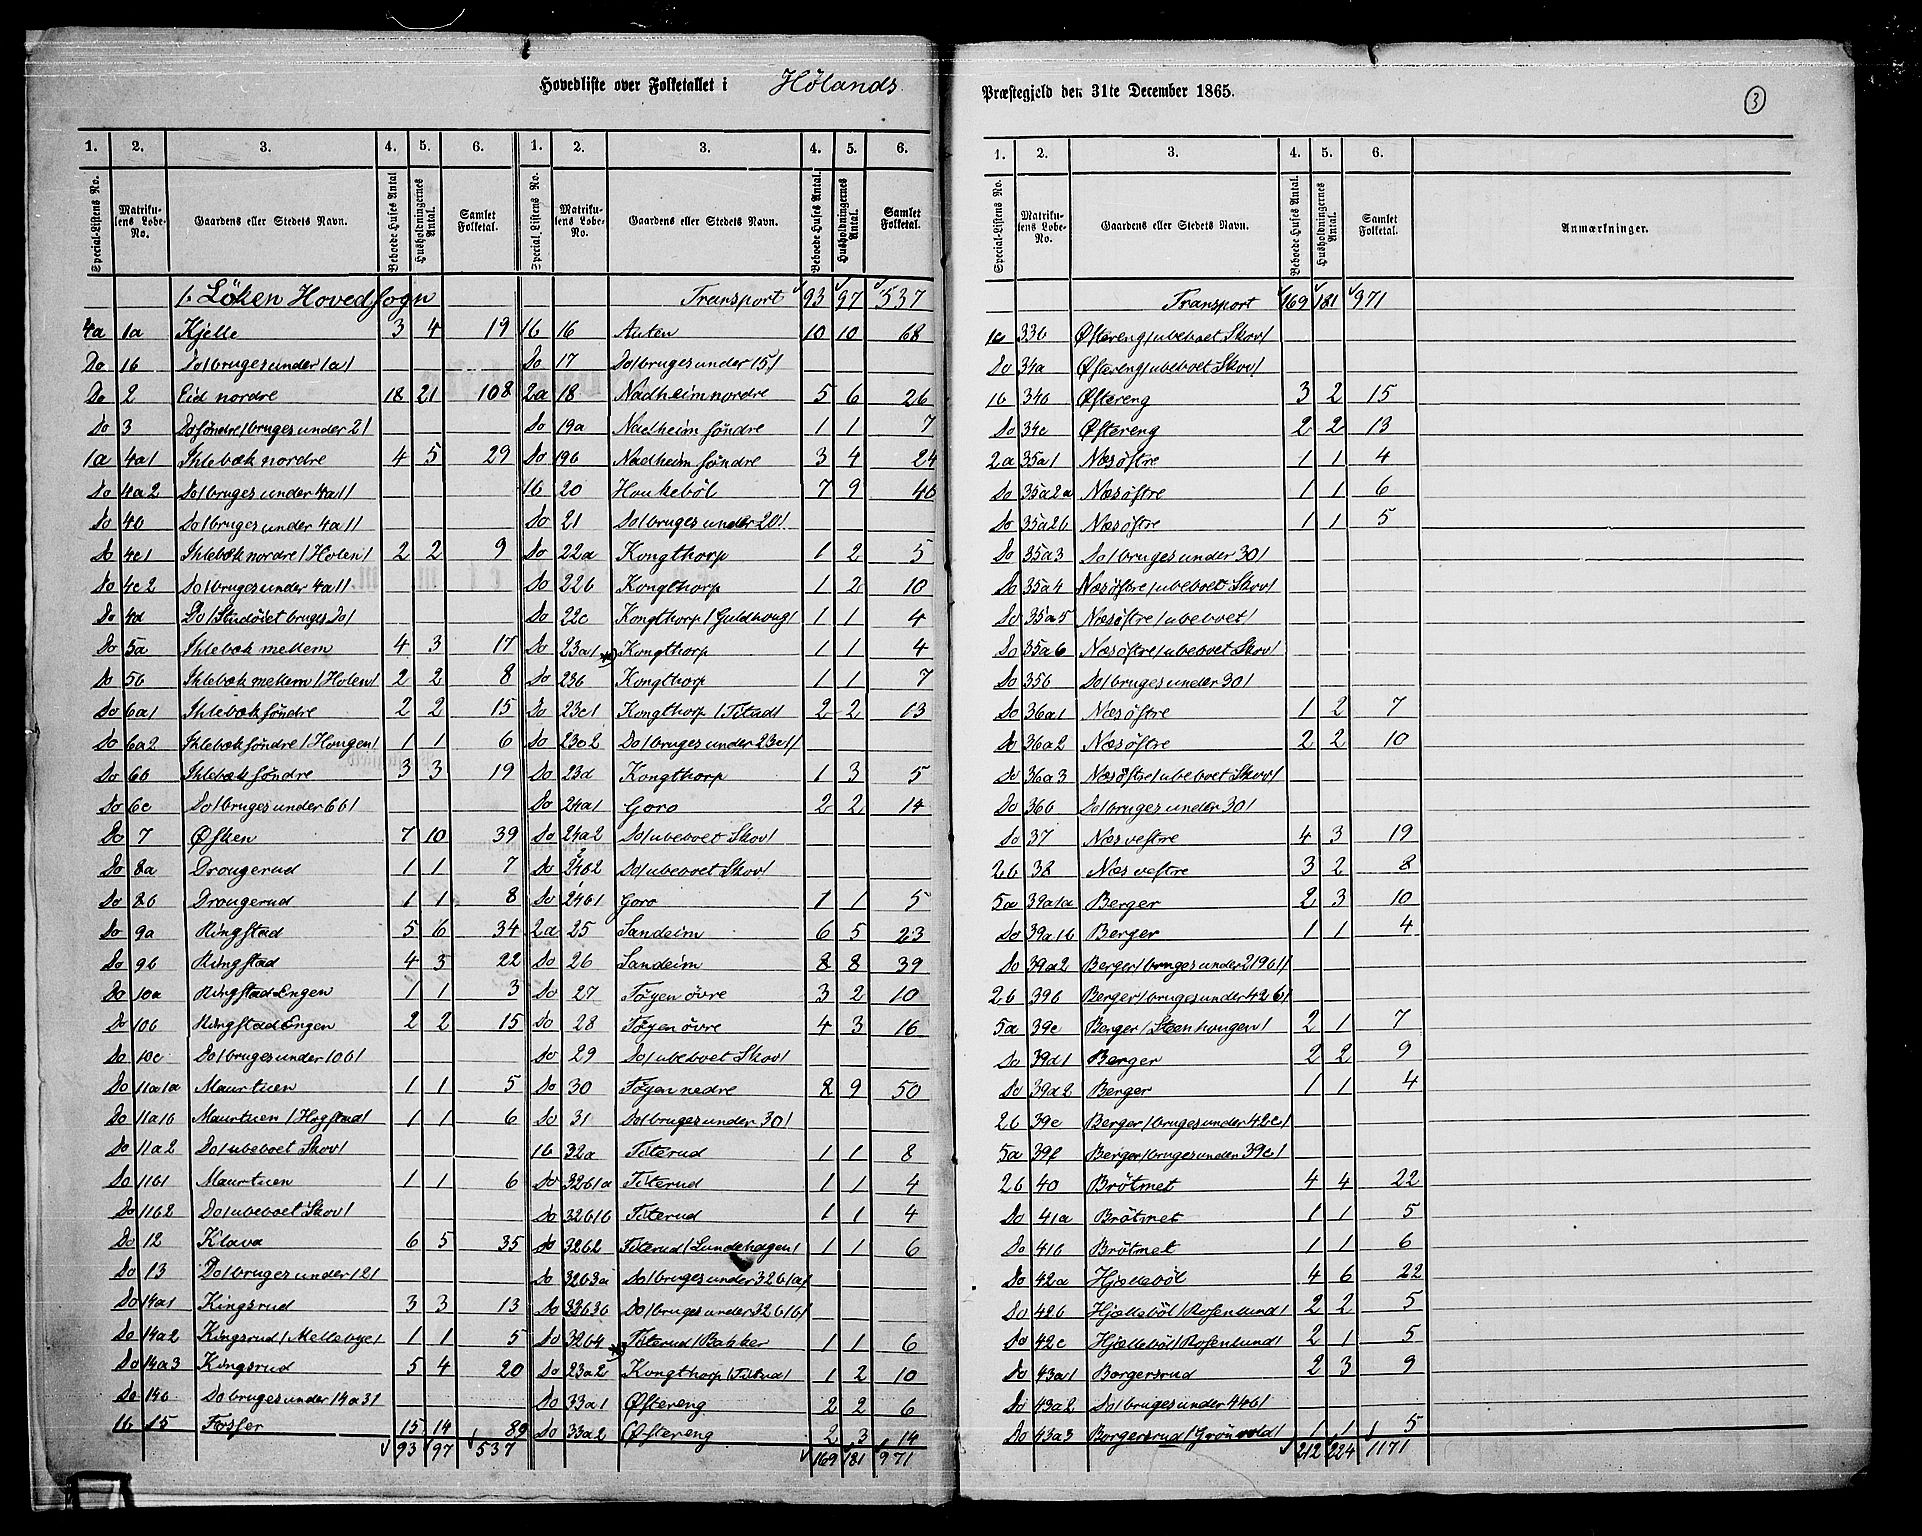 Hovedliste over Folketallet i Hølands
1. 2. 3. 4. 5. 6. 1. 2. 3. 4. 5. 6.
Special-Listens No. Matrikulens Løbe-No. Gaardens eller Stedets Navn. Beboede Huses Antal Husholdningernes Antal. Samlet Folketal. Special-Listens No. Matrikulens Løbe-No. Gaardens eller Stedets Navn. Beboede Huses Antal. Husholdningernes Antal. Samlet Folketal.
1. Løken Hovedsogn Transport 93 97 537
4a 1a Kjelle 3 4 19 1b 16 Auten 10 10 68
Do 1b Do/bruges under 1a/ Do 17 Do/bruges under 15/
Do 2 Eid nordre 18 21 108 2a 18 Nadheim nordre 5 6 26
Do 3 Do søndre/bruges under 2/ Do 19a Nadheim søndre 1 1 7
1a 4a1 Ihlebæk nordre 4 5 29 Do 19b Nadheim søndre 3 4 24
Do 4a2 Do/bruges under 4a1/ 1b 20 Haukebøl 7 9 46
Do 4b Do/bruges under 4a1/ Do 21 Do/bruges under 20/
Do 4c1 Ihlebæk nordre/Holen/ 2 2 9 Do 22a Kongthorp 1 2 5
Do 4c2 Do/bruges under 4a1/ Do 22b Kongthorp 1 2 10
Do 4d Do bruges Do/ Do 22c Kongthorp/Guldhoug/ 1 1 4
Do 5a Ihlebæk mellem 4 3 17 Do 23a1 Kongthorp 1 1 4
Do 5b Ihlebæk mellem/Holen/ 2 2 8 Do 23b Kongthorp 1 1 7
Do 6a1 Ihlebæk søndre 2 2 15 Do 23c1 Kongthorp/Titud/ 2 2 13
Do 6a2 Ihlebæk søndre/Hougen/ 1 1 6 Do 23c2 Do/bruges under 23c1/
Do 6b Ihlebæk søndre 3 3 19 Do 23d Kongthorp 1 3 5
Do 6c Do/bruges under 6b/ Do 24a1 Goro 2 2 14
Do 7 Øsken 7 10 39 Do 24a2 Do/ubeboet Skov/
Do 8a Drougerud 1 1 7 Do 24b2 Do/ubeboet Skov/
Do 8b Drougerud 1 1 8 Do 24b1 Goro 1 1 5
Do 9a Ringstad 5 6 34 2a 25 Sandeim 6 5 23
Do 9b Ringstad 4 3 22 Do 26 Sandeim 8 8 39
Do 10a Ringstad Engen 1 1 3 Do 27 Tøyen øvre 3 2 10
Do 10b Ringstad Engen 2 2 15 Do 28 Tøyen øvre 4 3 16
Do 10c Do/bruges under 10b/ Do 29 Do/ubeboet Skov/
Do 11a1a Maurtuen 1 1 5 Do 30 Tøyen nedre 8 9 50
Do 11a1b Maurtuen/Hogstad/ 1 1 6 Do 31 Do/bruges under 30/
Do 11a2 Do/ubeboet Skov/ 1b 32a Titerud 1 1 8
Do 11b1 Maurtuen 1 1 6 Do 32b1a Titerud 1 1 4
Do 11b2 Do/ubeboet Skov/ Do 32b1b Titerud 1 1 4
Do 12 Klava 6 5 35 Do 32b2 Titerud/Lundehagen/ 1 1 6
Do 13 Do/bruges under 12/ Do 32b3a Do/bruges under 32b1a/
Do 14a1 Kingsrud 3 3 13 Do 32b3b Do/bruges under 32b1b/
Do 14a2 Kingsrud/Mellebye/ 1 1 5 Do 32b4 Titerud/Bakker 1 1 6
Do 14a3 Kingsrud 5 4 20 Do 23a2 Kongthorp/Titud/ 1 2 10
Do 14b Do bruges under 14a3/ Do 33a1 Østereng 2 2 6
1b 15 Fosser 15 14 89 Do 33a2 Østereng 2 3 14
93 97 537 169 181 971
Præstegjeld den 31te December 1865.
3
1. 2. 3. 4. 5. 6.
Special-Listens No. Matrikulens Løbe-No. Gaardens eller Stedets Navn. Beboede Huses Antal. Husholdningernes Antal. Samlet Folketal. Anmærkninger.
Transport 169 181 971
1c 33b Østereng/ubeboet Skov/
Do 34a Østereng/ubeboet Skov/
1b 34b Østereng 3 2 15
Do 34c Østereng 2 2 13
2a 35a1 Næs østre 1 1 4
Do 35a2a Næs østre 1 1 6
Do 35a2b Næs østre 1 1 5
Do 35a3 Do/bruges under 30/
Do 35a4 Næs østre/ubeboet Skov/
Do 35a5 Næs østre/ubeboet/
Do 35a6 Næs østre/ubeboet Skov/
Do 35b Do/bruges under 30/
Do 36a1 Næs østre 1 2 7
Do 36a2 Næs østre 2 2 10
Do 36a3 Næs østre/ubeboet Skov/
Do 36b Do/bruges under 30/
Do 37 Næs vestre 4 3 19
2b 38 Næs vestre 3 2 8
5a 39a1a Berger 2 3 10
Do 39a1b Berger 1 1 4
Do 39a2 Berger/bruges under 219b1/
2b 39b Berger/bruges under 42b/
5a 39c Berger/Steenhougen/ 2 1 7
Do 39d1 Berger 2 2 9
Do 39d2 Berger 1 1 4
2b 39e Berger/bruges under 42c/
5a 39f Berger/bruges under 39c/
2b 40 Brøtmet 4 4 22
Do 41a Brøtmet 1 1 5
Do 41b Brøtmet 1 1 6
Do 42a Hjellebøl 4 6 22
Do 42b Hjellebøl/Rosenlund/ 2 2 5
Do 42c Hjellebøl/Rosenlund/ 2 1 5
Do 43a1 Borgersrud 2 3 9
Do 43a2 Do/bruges under 44b/
Do 43a3 Borgersrud/Grønvold/ 1 1 5
212 224 1171